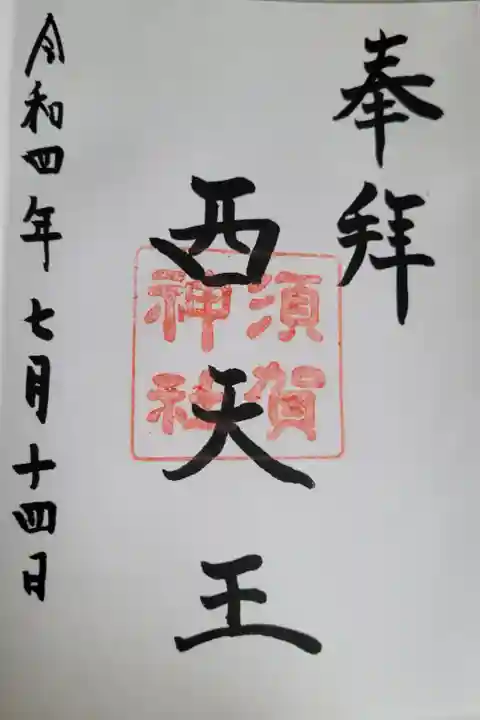 奉拝
西天王
須賀
神社
令和四年七月十四日